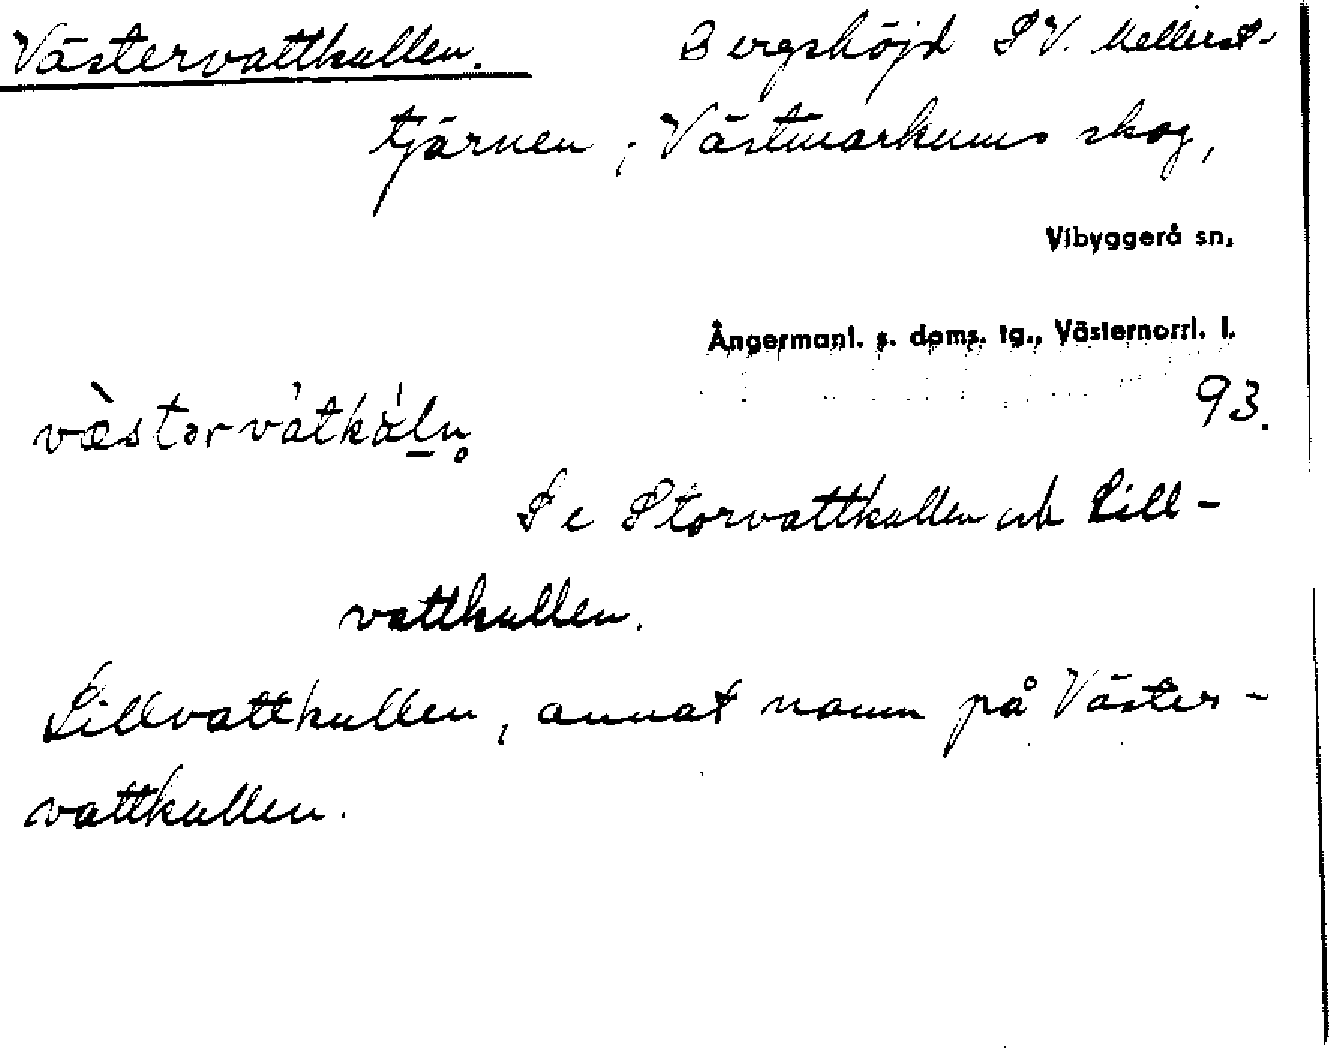 Västervattkullen. Bergshöjd SV. Mellerst-
tjärnen, Västmarkums skog,
Vibyggerå sn.
Ångermanl. s. doms. tg., Västernorrl. l.
93.
væ̀stər vátkùl̲n̥
Se Storvattkullen och Lill-
vattkullen.
Lillvattkullen, annat namn på Väster-
vattkullen.